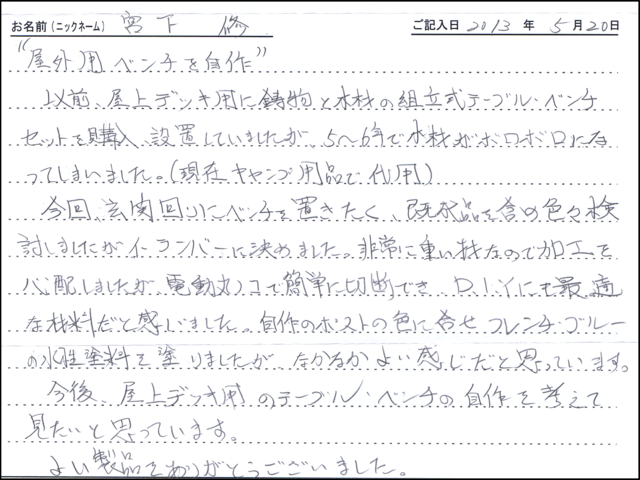 お名前(ニックネーム) 宮下 修 ご記入日 2013 年 5 月 20 日
"屋外用ベンチを自作"
以前、屋上デッキ用に鋳物と木材の組立式テーブル・ベンチ
セットを購入、設置していましたが、5〜6年で木材がボロボロにな
ってしまいました。(現在キャンプ用品で代用)
今回、玄関回りにベンチを置きたく、既成品を含め色々検
討しましたがイーランバーに決めました。非常に重い材なので加工を
心配しましたが、電動丸ノコで簡単に切断でき、D.I.Yにも最適
な材料だと感じました。自作のポストの色に合せフレンチブルー
の水性塗料を塗りましたが、なかなかよい感じだと思っています。
今後、屋上デッキ用のテーブル・ベンチの自作を考えて
見たいと思っています。
よい製品をありがとうございました。